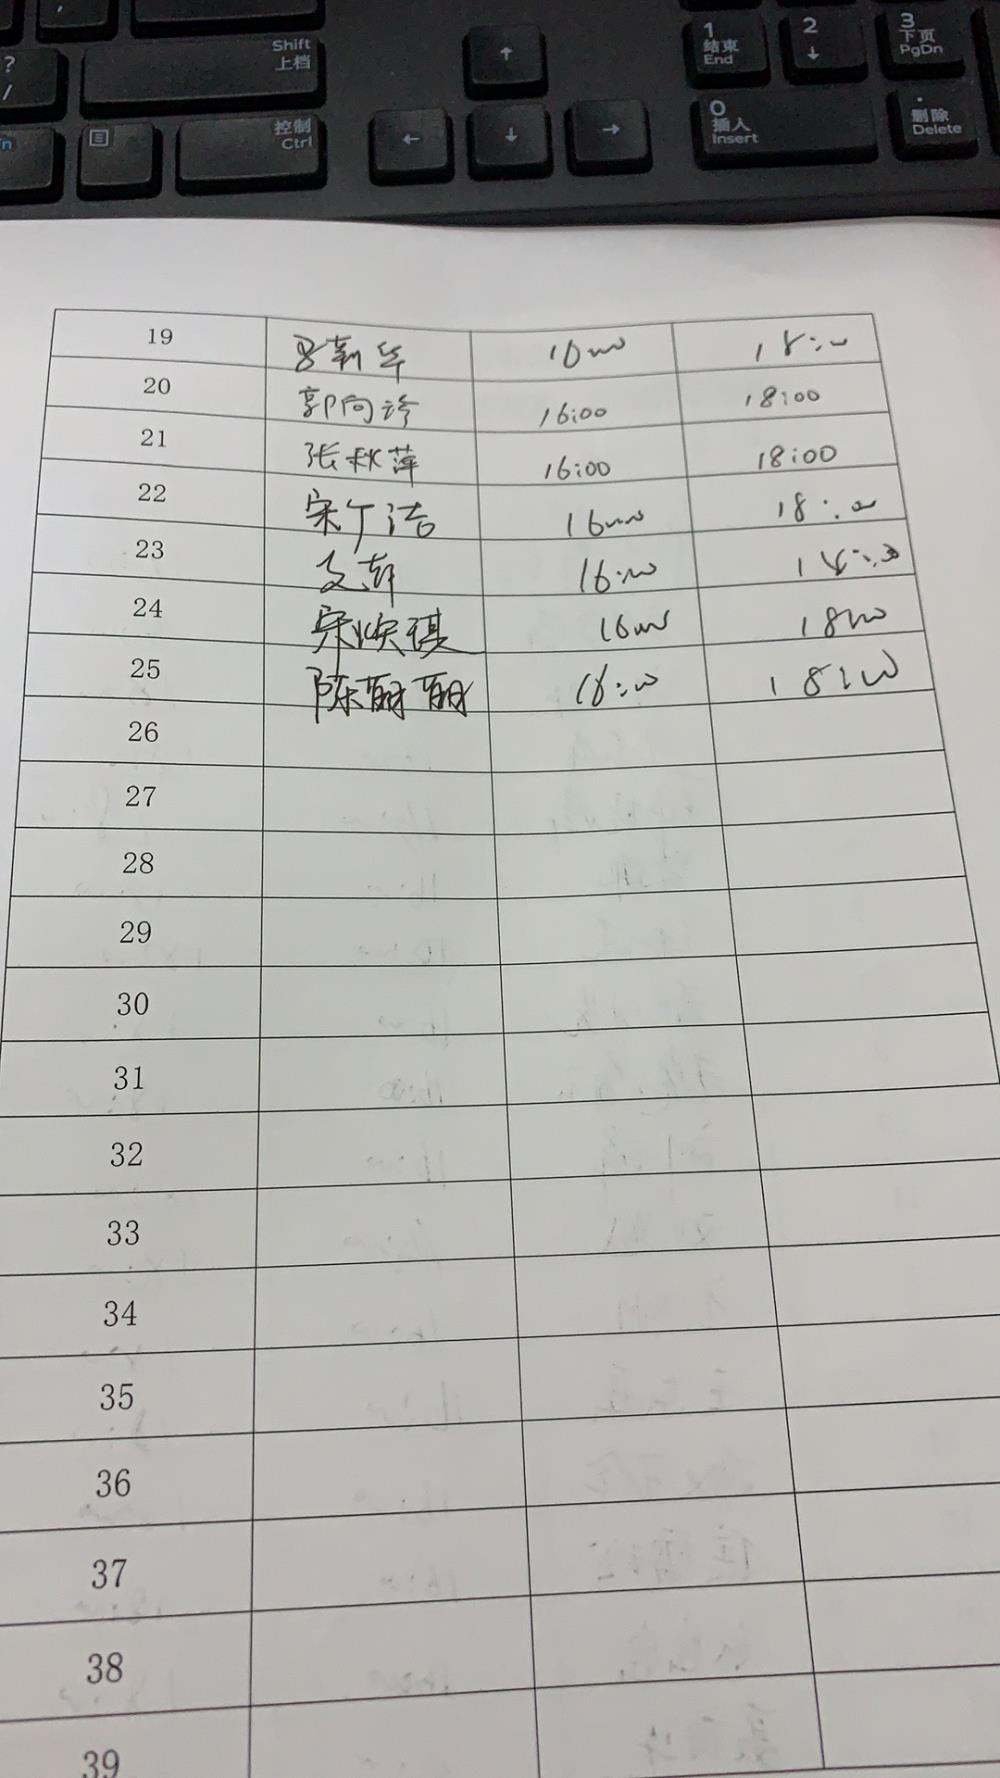 ?
/
Shift
上档
控制
Ctrl
↑
←
↓
→
1
结束
End
2
↓
3
下页
PgDn
0
插入
Insert
.
删除
Delete
19 新华 16:00 18:00
20 郭向 16:00 18:00
21 张秋萍 16:00 18:00
22 宋 洁 16:00 18:00
23 16:00 18:00
24 宋焕琪 16:00 18:00
25 陈丽丽 16:00 18:00
26
27
28
29
30
31
32
33
34
35
36
37
38
39